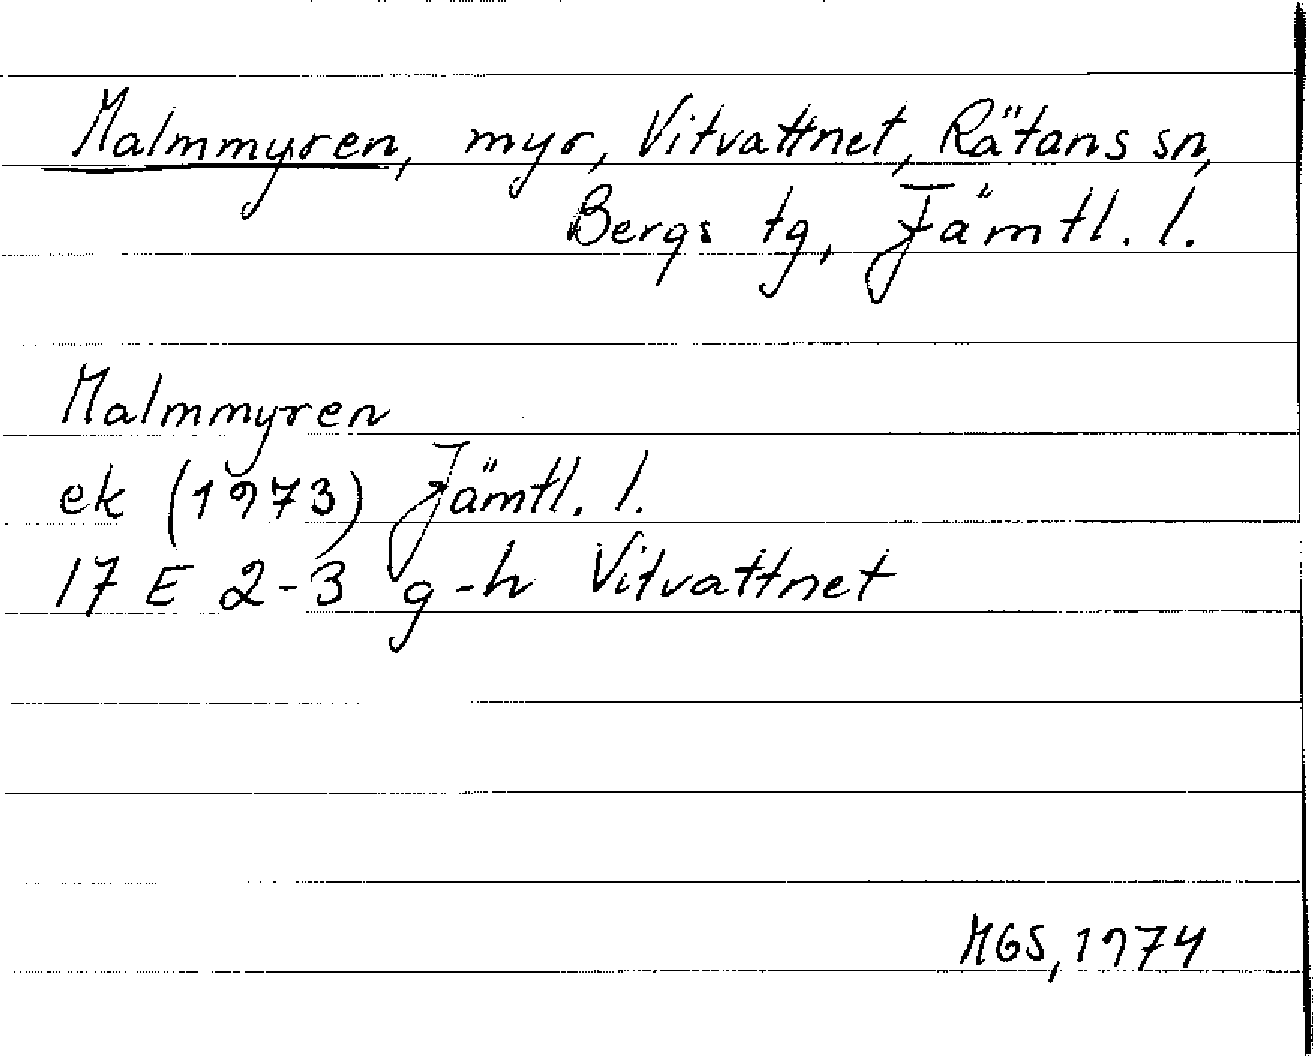 Malmmyren, myr, Vitvattnet, Rätans sn,
Bergs tg, Jämtl. l.
Malmmyren
ek (1973) Jämtl. l.
17 E 2-3 g-h Vitvattnet
MGS, 1974